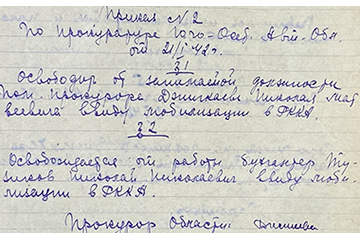 Приказ № 2
По прокуратуре Юго-Осет. Авт. Обл.
от 21/I 42 г.
§ 1
Освободир от занимаемой должности
Пом. Прокурора Джиккаеву Николая Мат
веевича ввиду мобилизации в РККА.
§ 2
Освобождается от работы бухгалтер Ту
Николай Николаевич ввиду моби
лизации в РККА.
Прокурор Области